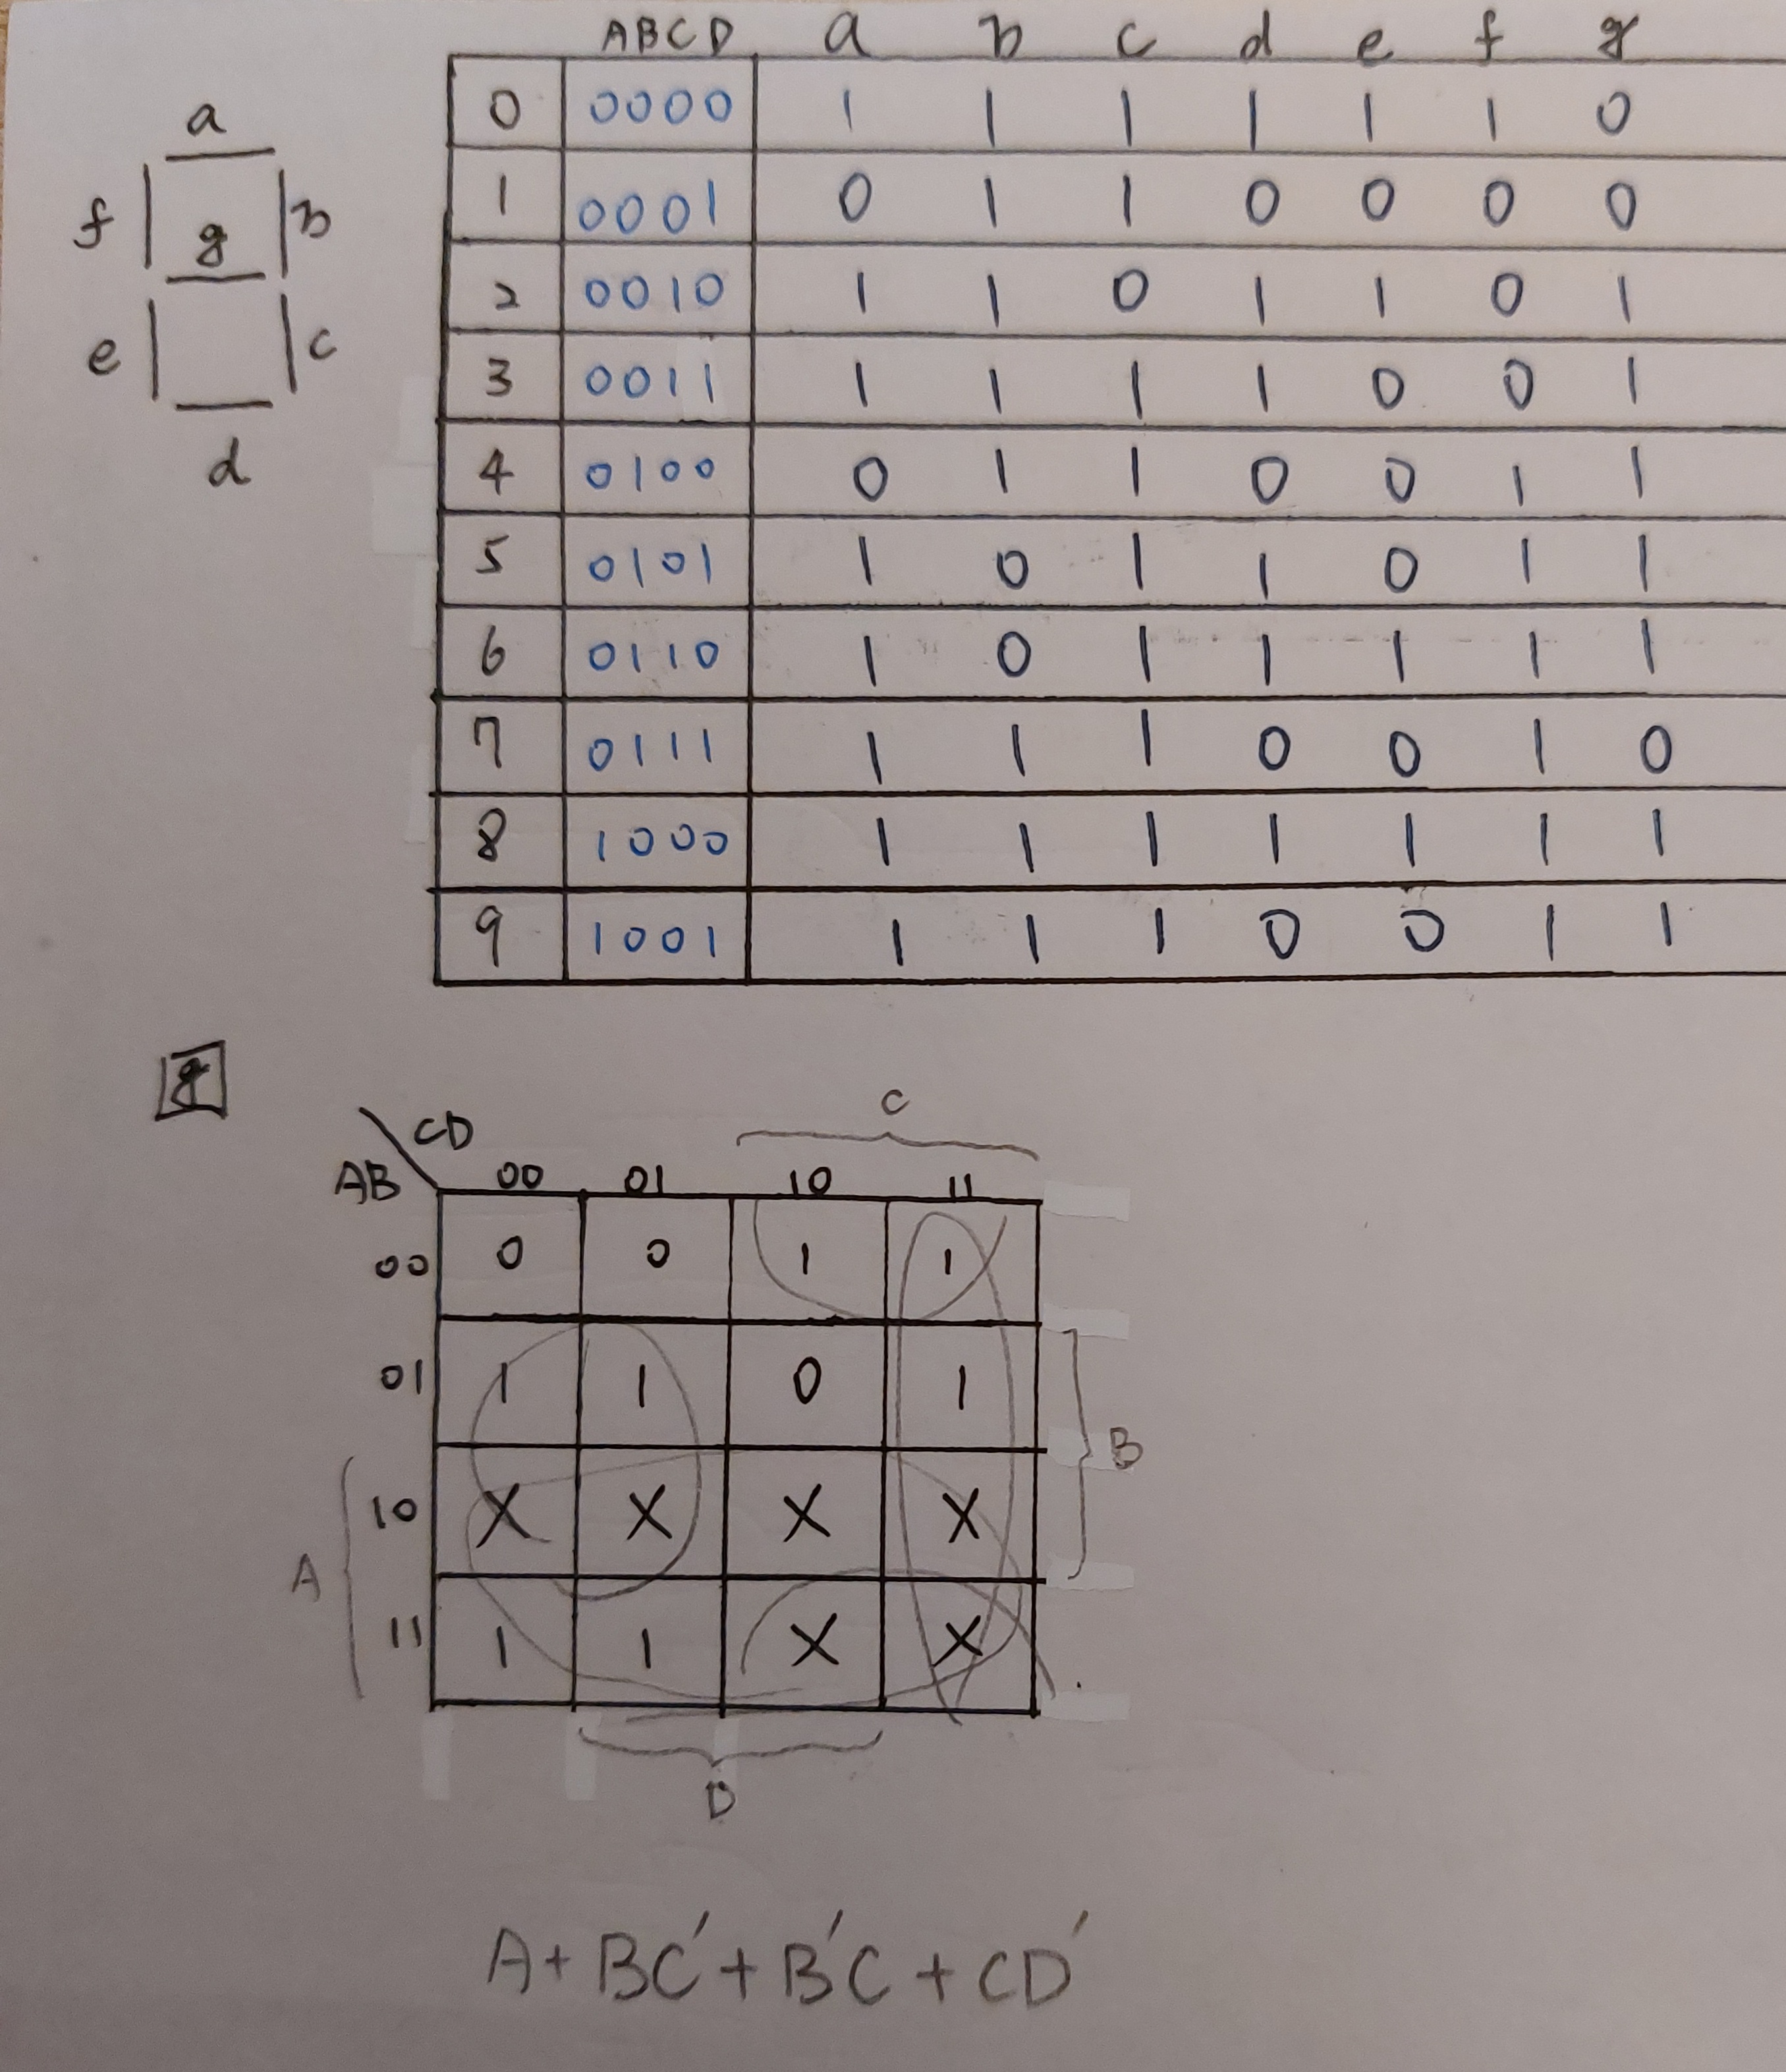 a
f g b
e c
d
ABCD a b c d e f g
0 0000 1 1 1 1 1 1 0
1 0001 0 1 1 0 0 0 0
2 0010 1 1 0 1 1 0 1
3 0011 1 1 1 1 0 0 1
4 0100 0 1 1 0 0 1 1
5 0101 1 0 1 1 0 1 1
6 0110 1 0 1 1 1 1 1
7 0111 1 1 1 0 0 1 0
8 1000 1 1 1 1 1 1 1
9 1001 1 1 1 0 0 1 1
g
C
CD
AB 00 01 10 11
00 0 0 1 1
01 1 1 0 1
B
10 X X X X
A
11 1 1 X X
D
A+BC'+B'C+CD'